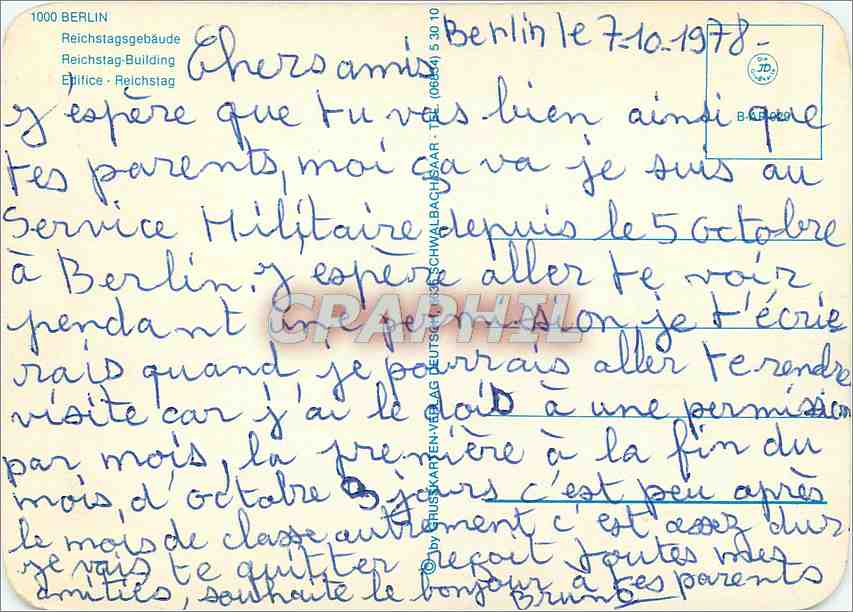 1000 BERLIN
Reichstagsgebäude
Reichstag-Building
Edifice - Reichstag
Berlin le 7-10-1978-
Chers amis
J'espère que tu vas bien ainsi que
tes parents, moi ça va je suis au
Service Militaire depuis le 5 Octobre
à Berlin. J'espère aller te voir
pendant une permission, je t'écrie
rais quand je pourrais aller te rendre
visite car j'ai le doit à une permission
par mois, la première à la fin du
mois, d'octobre 3 jours c'est peu après
le mois de classe autrement c'est assez dur
je vais te quitter reçoit toutes mes
amitiés, souhaite le bonjour à tes parents
Bruno
© by GRUSSKARTEN-VERLAG DEUTSCH SCHWALBACH/SAAR · TEL. (06834) 5 30 10
JD
CPAPHIL